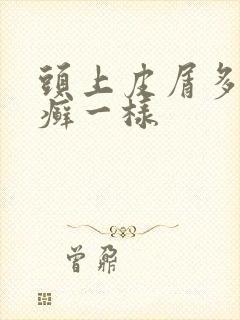 頭上皮屑多
癬一樣
曾鼐